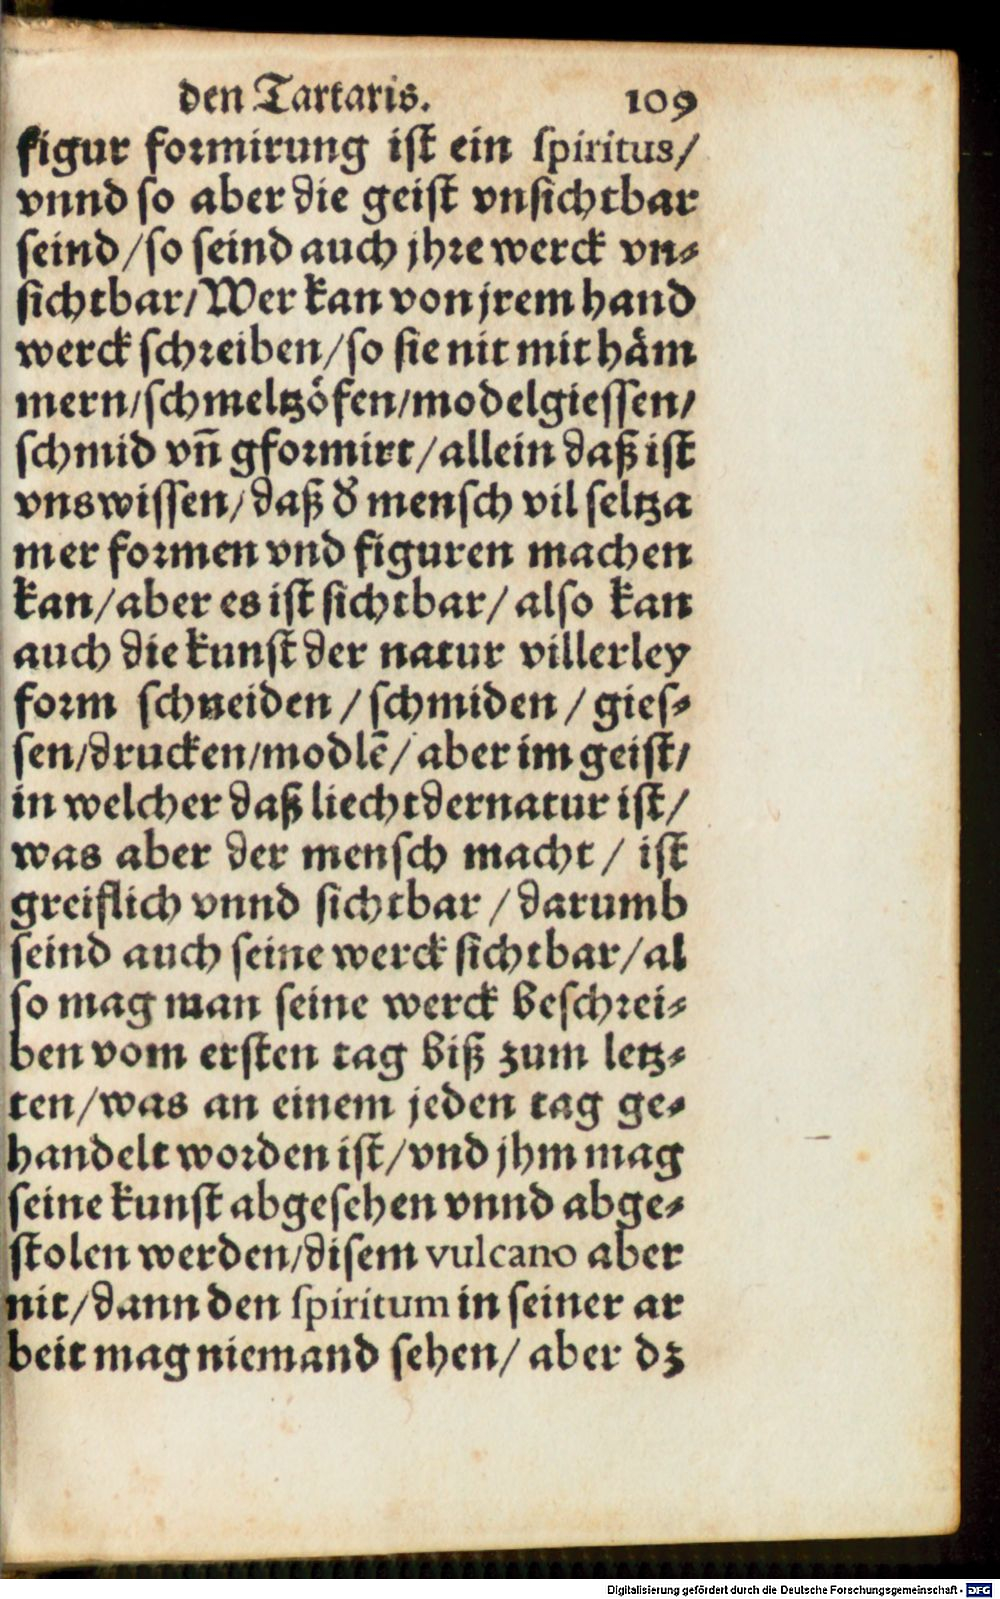 den Tartaris. 109
figur formirung ist ein spiritus/
vnnd so aber die geist vnsichtbar
seind/so seind auch jhre werck vn-
sichtbar/Wer kan von jrem hand
werck schreiben/so sie nit mit häm
mern/schmeltzöfen/modelgiessen/
schmid vñ gformirt/allein daß ist
vns wissen/daß d̕ mensch vil seltza
mer formen vnd figuren machen
kan/aber es ist sichtbar/also kan
auch die kunst der natur villerley
form schneiden/schmiden/gies-
sen/drucken/modlē/aber im geist/
in welcher daß liecht der natur ist/
was aber der mensch macht/ist
greiflich vnnd sichtbar/darumb
seind auch seine werck sichtbar/al
so mag man seine werck beschrei-
ben vom ersten tag biß zum letz-
ten/was an einem jeden tag ge-
handelt worden ist/vnd jhm mag
seine kunst abgesehen vnnd abge-
stolen werden/disem vulcano aber
nit/dann den spiritum in seiner ar
beit mag niemand sehen/aber dz
Digitalisierung gefördert durch die Deutsche Forschungsgemeinschaft - DFG